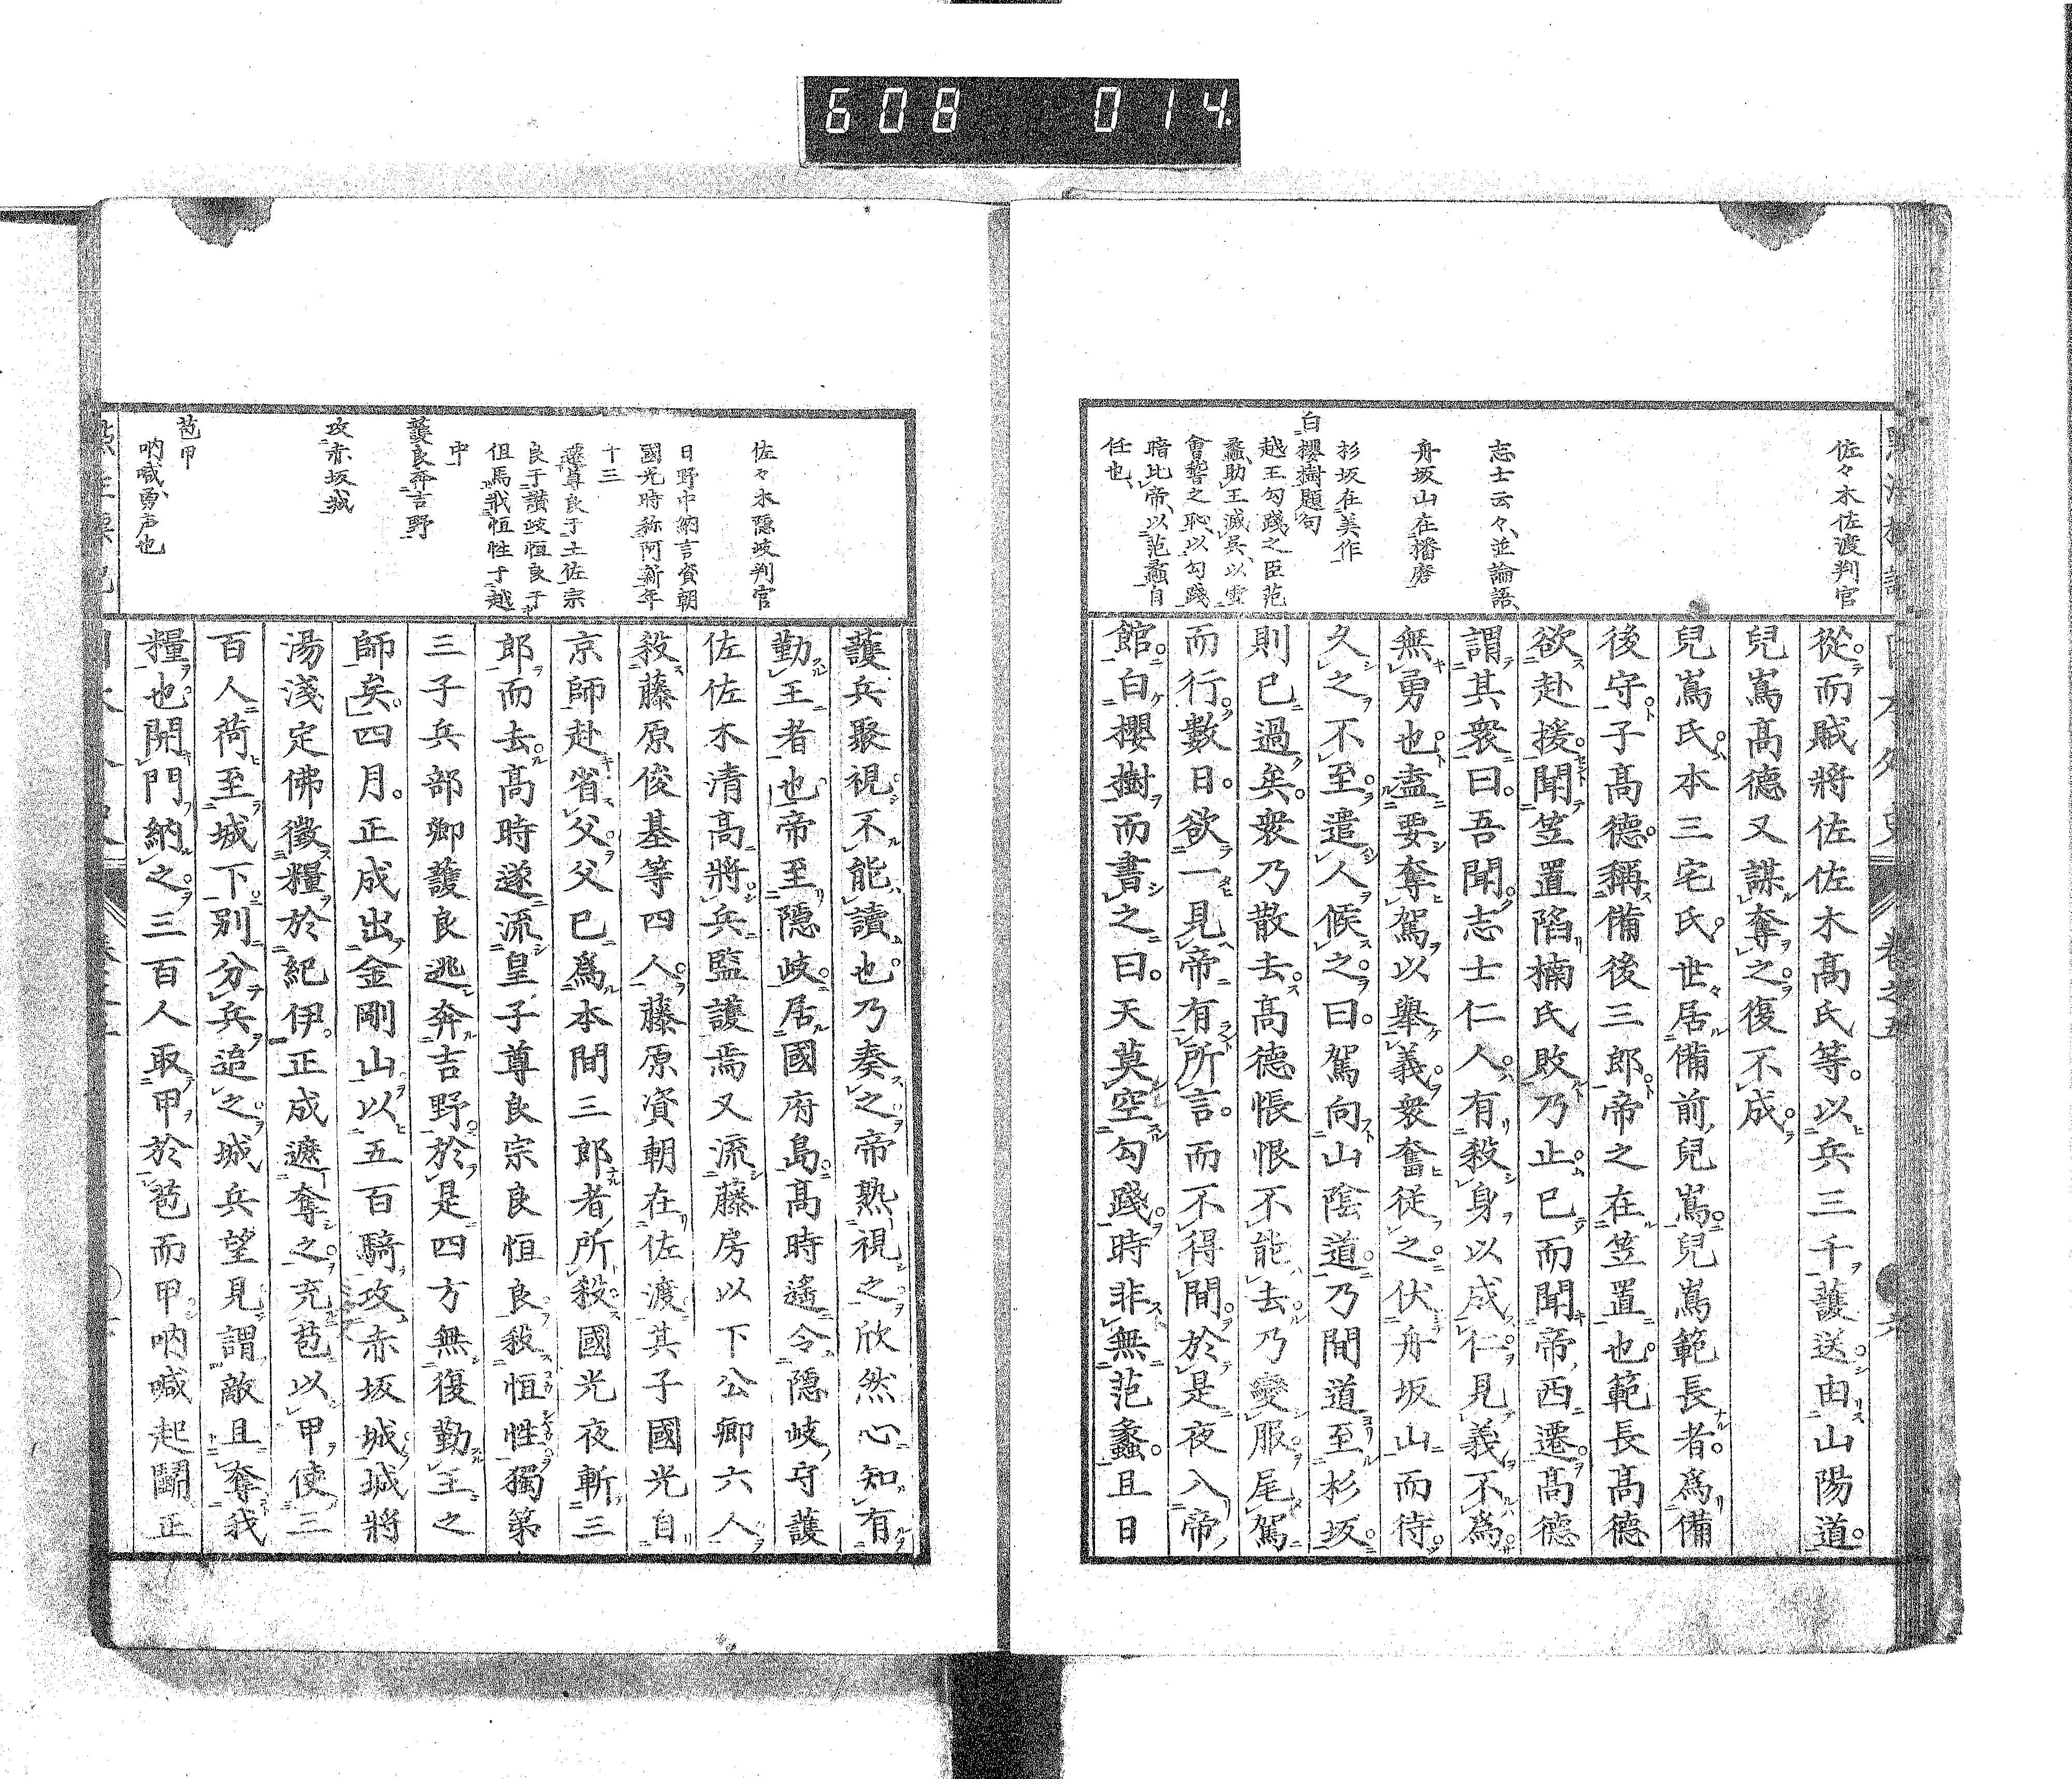 608 014
佐々木佐渡判官
志士云々、並論語、
舟坂山在播磨
杉坂在美作
白櫻樹題句
越王勾踐之臣范
蠡、助王滅吳、以雪
會稽之恥、以勾踐
暗比帝、以范蠡自
任也、
從而賊將佐佐木高氏等以兵三千護送由山陽道
兒嶌高德又謀奪之復不成
兒嶌氏本三宅氏世居備前兒嶌兒嶌範長者爲備
後守子高德稱備後三郎帝之在笠置也範長高德
欲赴援聞笠置陷楠氏敗乃止已而聞帝西遷高德
謂其衆曰吾聞志士仁人有殺身以成仁見義不爲
無勇也盍要奪駕以舉義衆奮從之伏舟坂山而待
久之不至遣人候之曰駕向山陰道乃間道至杉坂
則已過矣衆乃散去高德悵恨不能去乃變服尾駕
而行數日欲一見帝有所言而不得間於是夜入帝
館白櫻樹而書之曰天莫空勾踐時非無范蠡且日
佐々木隱岐判官
日野中納言資朝
國光時称阿新年
十三
遷尊良于土佐宗
良于讃岐恒良于
但馬、戕恒性于越
中
護良奔吉野
攻赤坂城
苞甲
吶喊、勇声也
護兵聚視不能讀也乃奏之帝熟視之欣然心知有
勤王者也帝至隱岐居國府島高時遙令隱岐守護
佐佐木清高將兵監護焉又流藤房以下公卿六人
殺藤原俊基等四人藤原資朝在佐渡其子國光自
京師赴省父父已爲本間三郎者所殺國光夜斬三
郎而去高時遂流皇子尊良宗良恒良殺恒性獨第
三子兵部卿護良逃奔吉野於是四方無復勤王之
師矣四月正成出金剛山以五百騎攻赤坂城城將
湯淺定佛徵糧於紀伊正成遮奪之充苞以甲使三
百人荷至城下別分兵追之城兵望見謂敵且奪我
糧也開門納之三百人取甲於苞而甲吶喊起鬭正